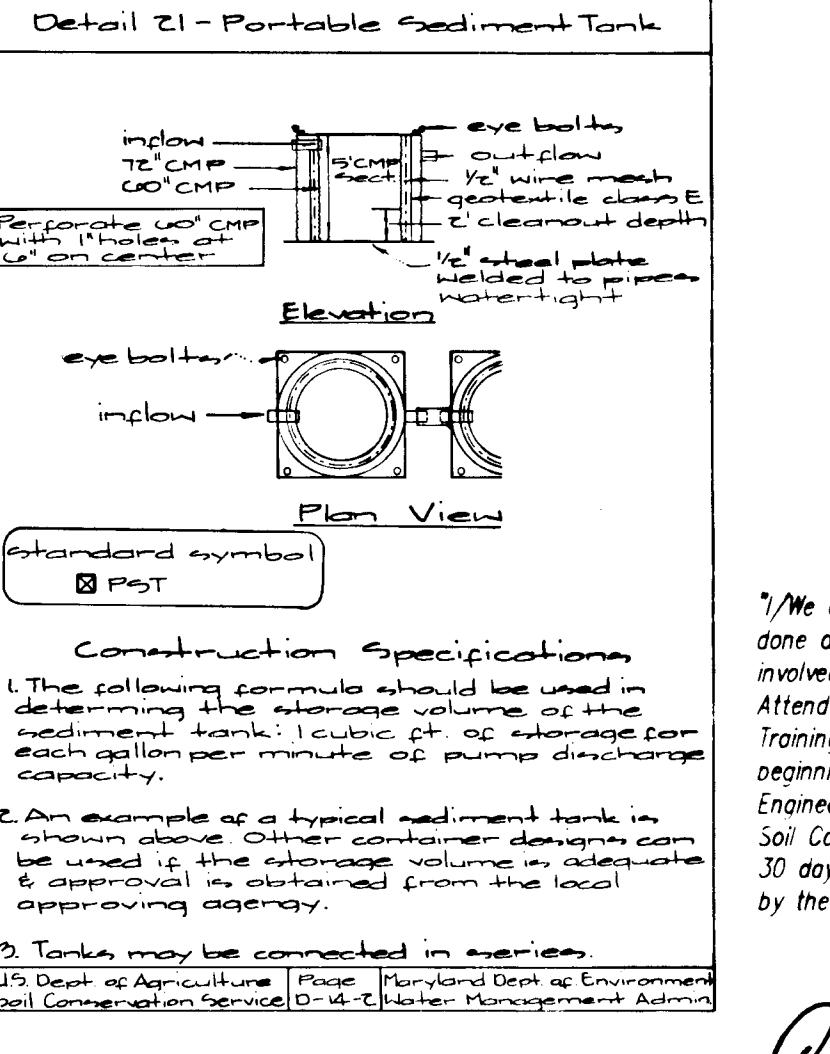 Detail 21 - Portable Sediment Tank
inflow
72" CMP
60" CMP
5' CMP
sect.
eye bolts
outflow
1/2" wire mesh
geotextile class E
2' cleanout depth
Perforate 60" CMP
with 1" holes at
6" on center
1/2" steel plate
welded to pipes
watertight
Elevation
eye bolts
inflow
Plan View
standard symbol
PST
Construction Specifications
1. The following formula should be used in
determing the storage volume of the
sediment tank: 1 cubic ft. of storage for
each gallon per minute of pump discharge
capacity.
2. An example of a typical sediment tank is
shown above. Other container designs can
be used if the storage volume is adequate
& approval is obtained from the local
approving agengy.
3. Tanks may be connected in series.
U.S. Dept. of Agriculture
Soil Conservation Service
Page
D-14-2
Maryland Dept. of Environment
Water Management Admin.
"I/We
done
involve
Attend
Training
beginni
Engineer
Soil Co
30 day
by the